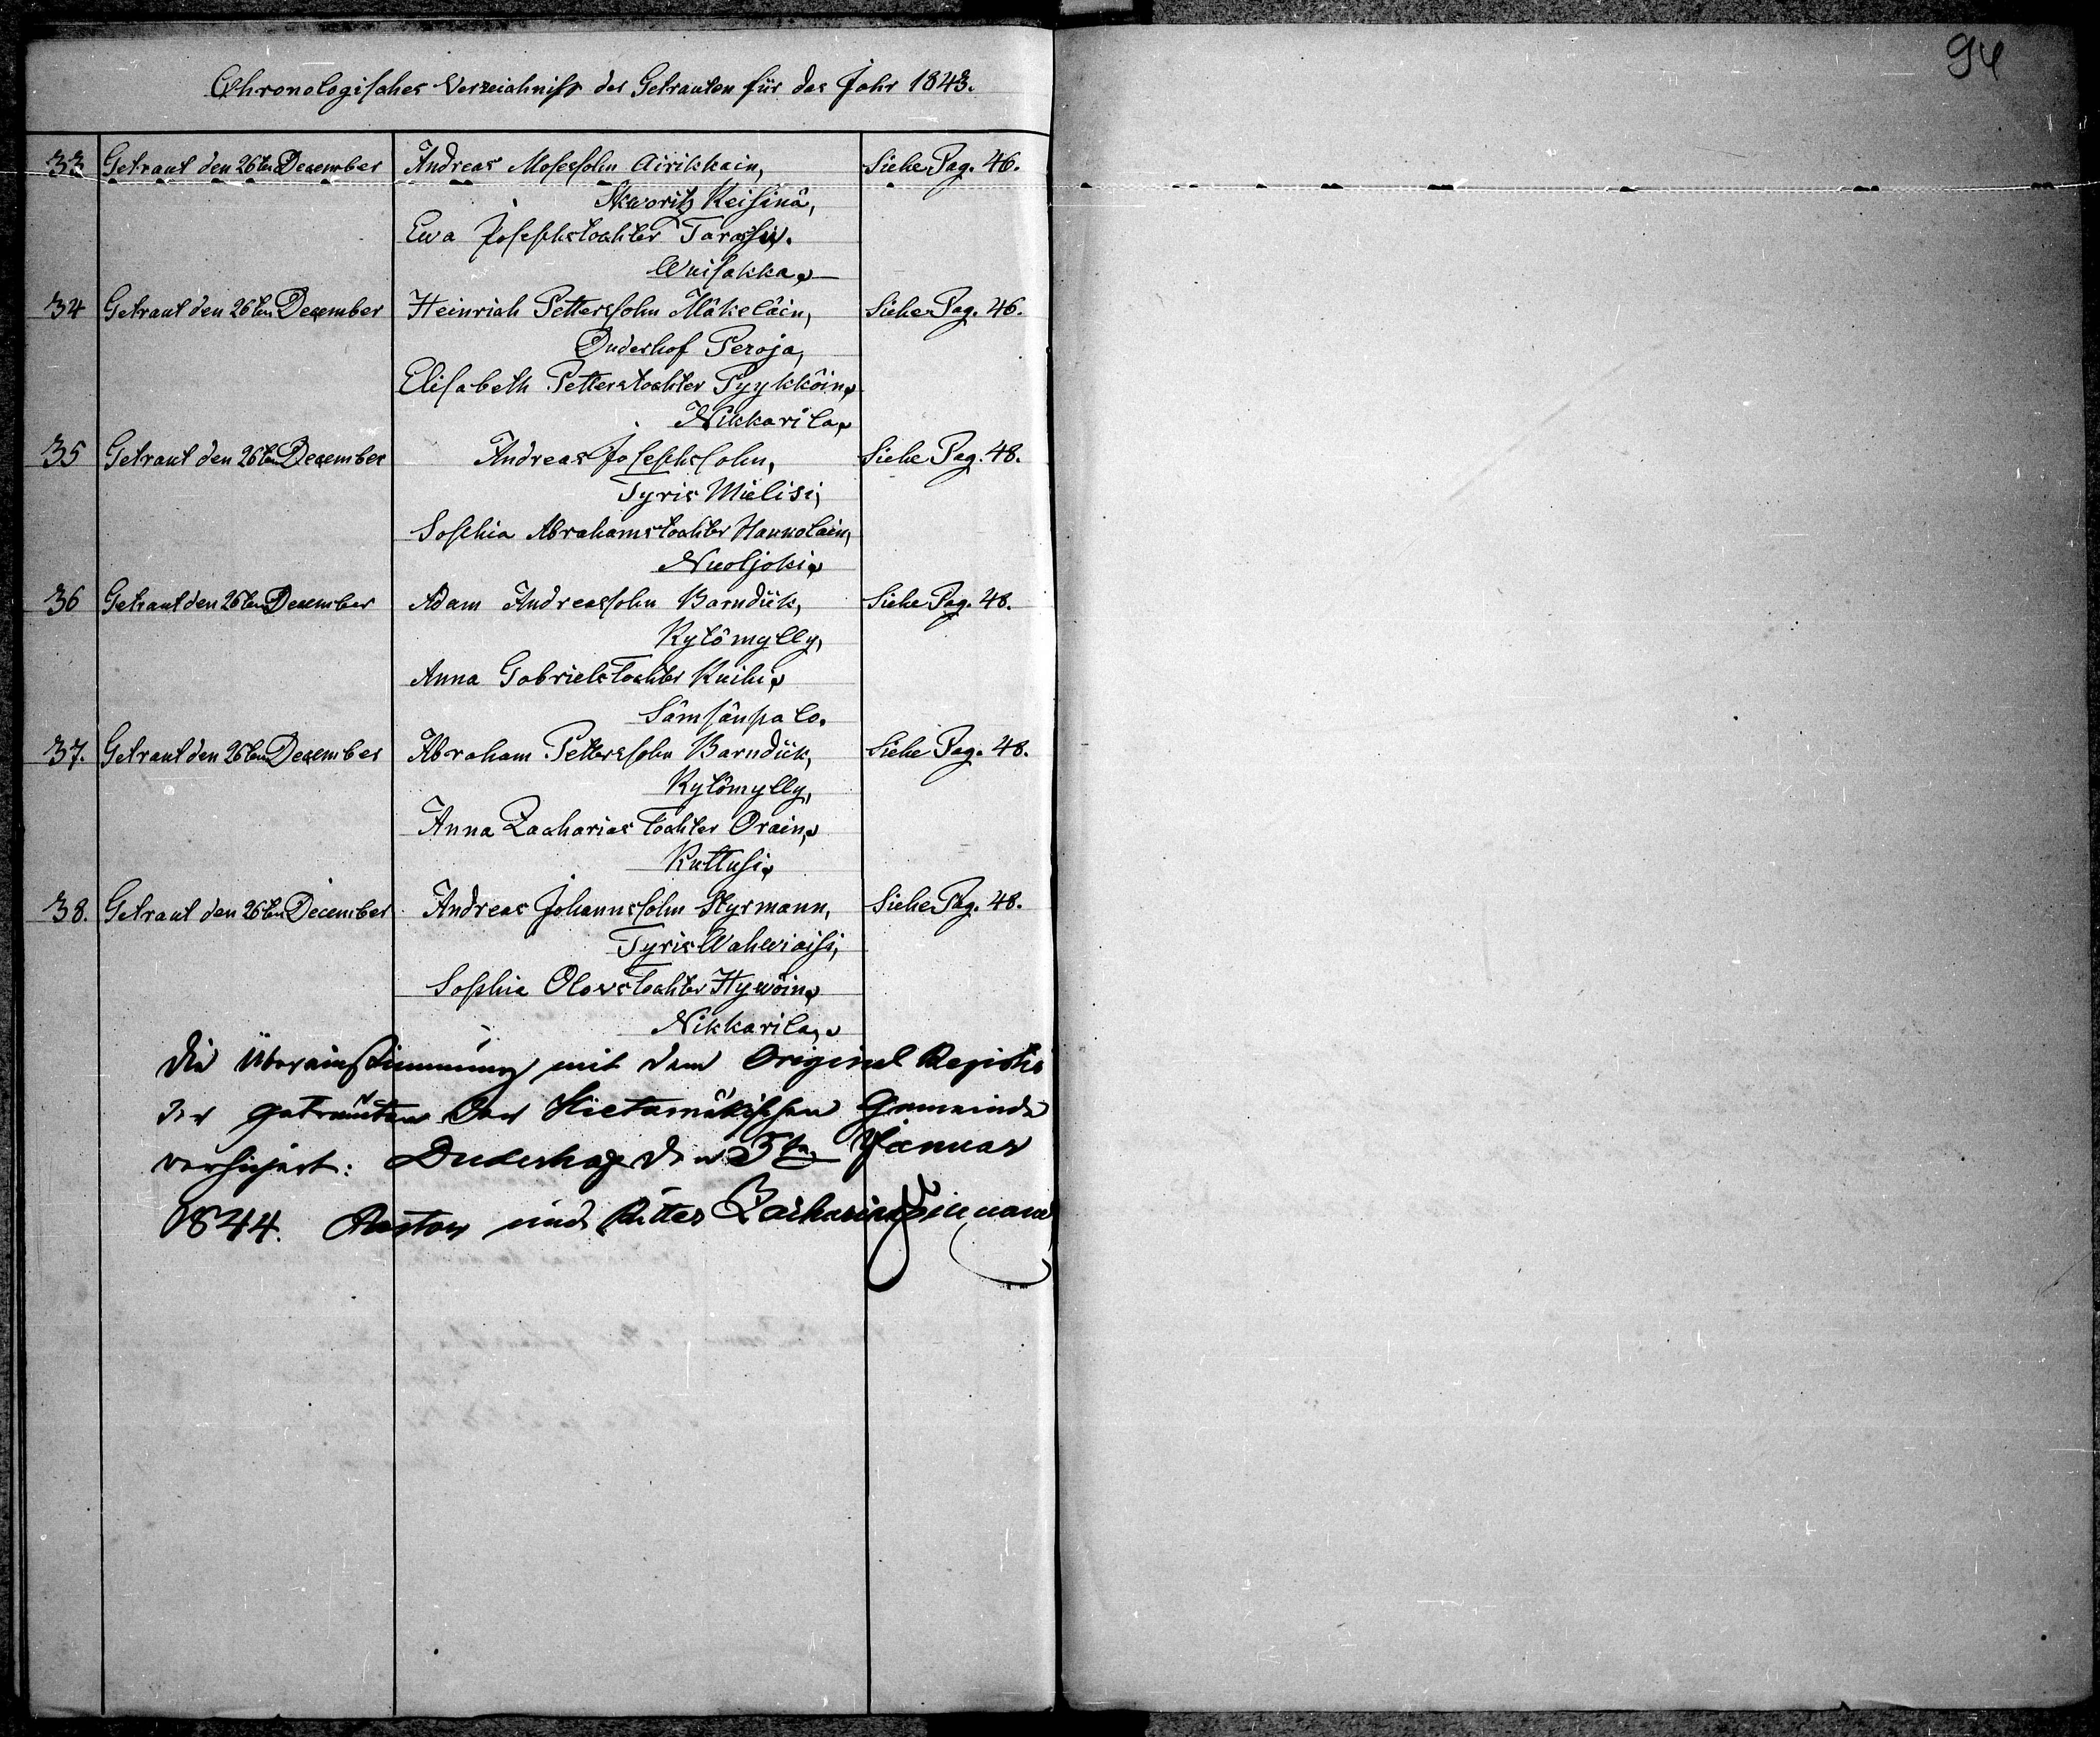 94
Chronologisches Verzeichniss der Getrauten für das Jahr 1843.
33 Getraut den 26ten December Andreas Mosessohn Airikkain, Siehe Pag. 46.
Skworitz Reisinä,
Ewa Josephstochter Tarassi.
Wuisakka.
34 Getraut den 26ten December Heinrich Petterssohn Mäkeläin, Siehe Pag. 46.
Duderhof Peroja,
Elisabeth Petterstochter Pyykköin,
Nikkarila,
35 Getraut den 26ten December Andreas Josephssohn, Siehe Pag. 48.
Tyris Mielisi,
Sophia Abrahamstochter Hannolain,
Nuoljoki,
36 Getraut den 26ten December Adam Andreassohn Barndük, Siehe Pag. 48.
Kylömylly,
Anna Gabrielstochter
Sämsänpalo.
37. Getraut den 26ten December Abraham Petterssohn Barndük, Siehe Pag. 48.
Kylömylly,
Anna Zacharias tochter Orain,
Kuttusi,
38. Getraut den 26ten December Andreas Johannssohn Styrmann, Siehe Pag. 48.
Tyris
Sophia Olovstochter Hywöin,
Nikkarila,
Die Übereinstimmung mit dem Original Register
der getrauten der Hietamäkischen Gemeinde
versichert: Duderhof den 5ten Januar
1844. Pastor und Ritter Zacharias